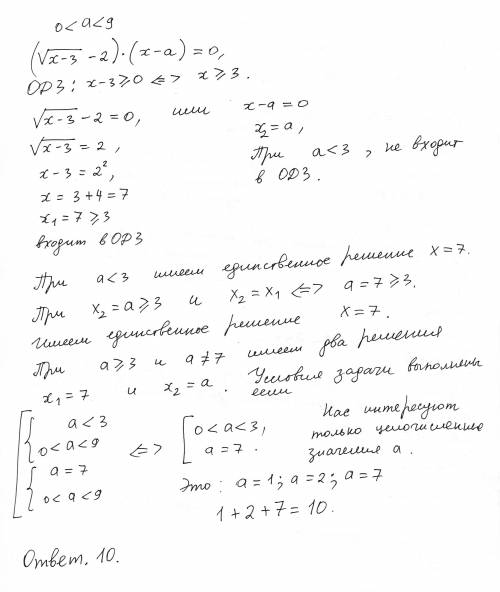 0 < a < 9
(√x-3 - 2)·(x-a) = 0,
ОДЗ: x-3 ⩾ 0 <=> x ⩾ 3.
√x-3 - 2 = 0, или x-a = 0
√x-3 = 2, x₂ = a,
x-3 = 2², При a<3, не входит
x = 3+4 = 7 в ОДЗ.
x₁ = 7 ⩾ 3
входит в ОДЗ
При a<3 имеем единственное решение x = 7.
При x₂ = a ⩾ 3 и x₂ = x₁ <=> a = 7 ⩾ 3.
Имеем единственное решение x = 7.
При a ⩾ 3 и a ≠ 7 имеем два решения
x₁ = 7 и x₂ = a. Условия задачи выполнены
если
[ { a < 3
0 < a < 9
{ a = 7
0 < a < 9
<=> [ 0 < a < 3,
a = 7.
Нас интересуют
только целочисленные
значения a.
Это: a = 1; a = 2; a = 7
1 + 2 + 7 = 10.
Ответ. 10.